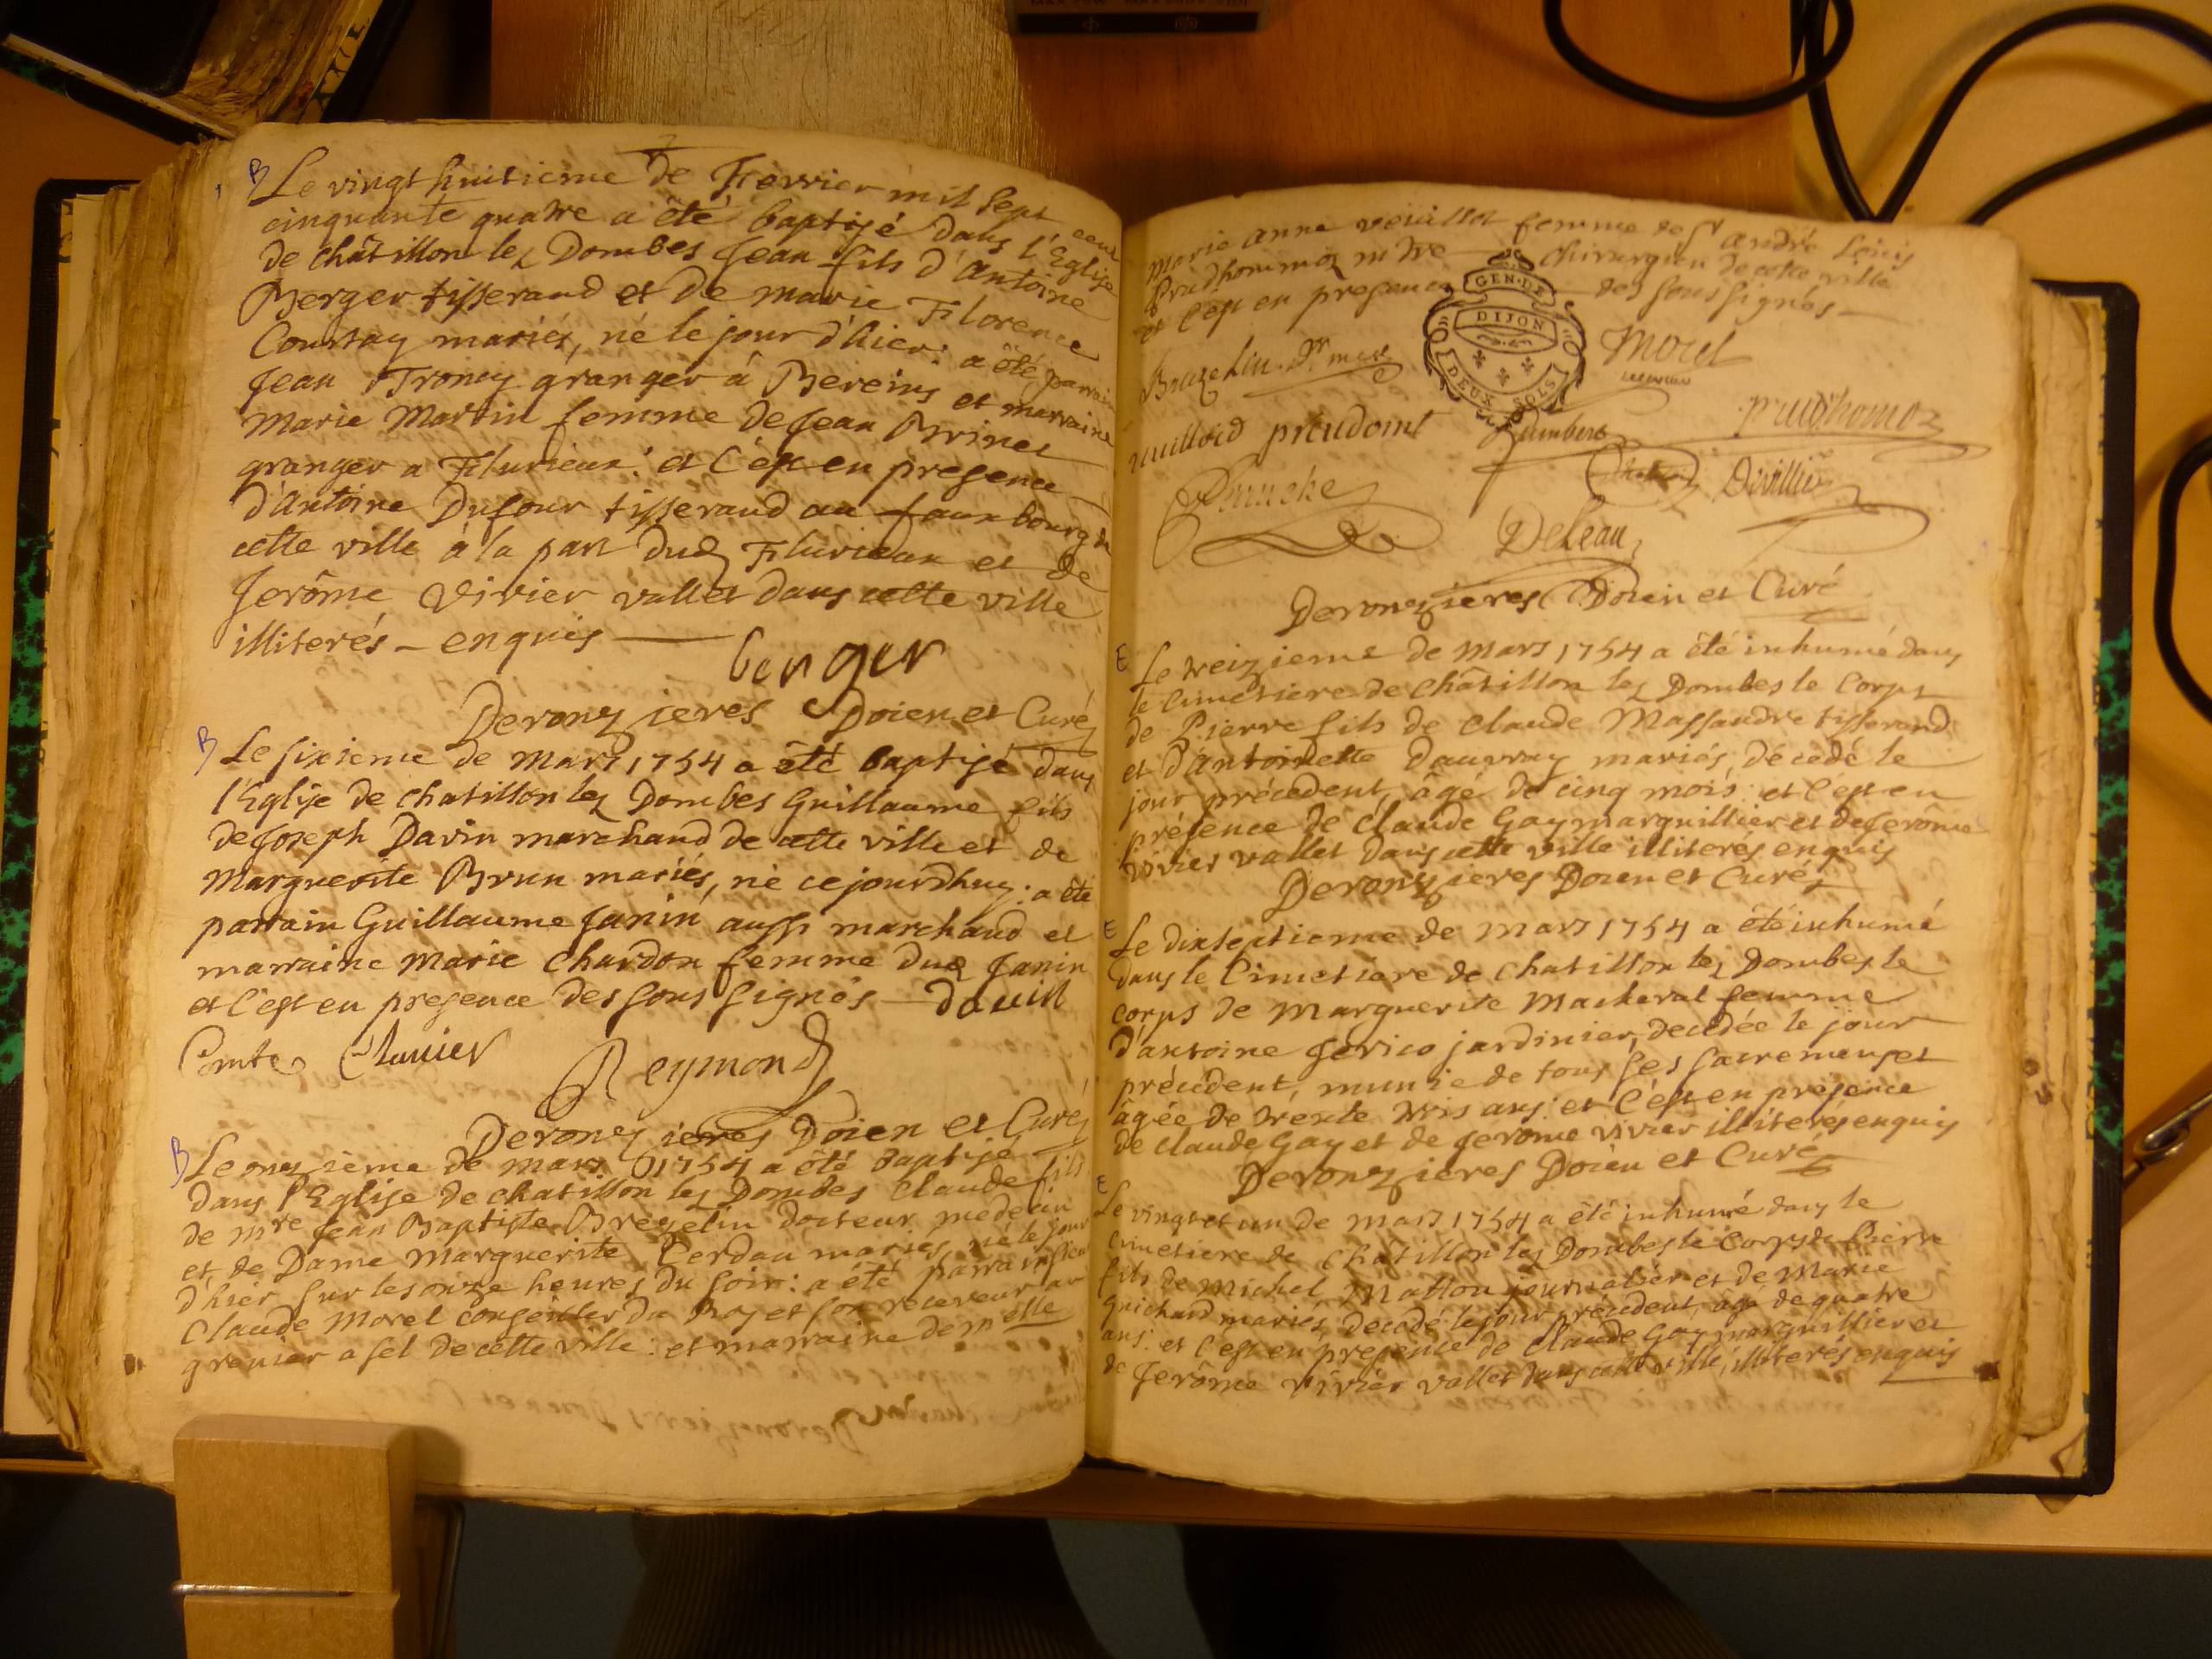 B Le vingt huitieme de Fevrier mil sept cent
cinquante quatre a êté baptisé dans l'Eglise
de châtillon lez Dombes Jean fils d'Antoine
Berger tisserand et de marie Florence
mariés, né le jour d'hier: a êté parrain
Jean Troncy granger à Bereins et marraine
Marie Martin femme de Jean
granger a Flurieux: et c'est en presence
d'Antoine Dufour tisserand au fauxbourg de
cette ville à la part dud Flurieux et de
Jerôme Vivier vallet dans cette ville
illiterés - enquis
berger
Deronzieres Doien et Curé
B Le sixieme de Mars 1754 a êté baptisé dans
l'Eglise de chatillon lez Dombes Guillaume fils
de Joseph Davin marchand de cette ville et de
Marguerite Brun mariés, né cejourdhuy: a êté
parrain Guillaume Janin aussi marchand et
marraine Marie Chardon femme dud Janin
et c'est en presence des sous signés davin
Comte Clunier
Reymond
Deronzieres Doien et Curé
B Le onzieme de mars 1754 a êté baptisé
dans l'Eglise de chatillon lez Dombes Claude fils
de mre Jean Baptiste docteur medecin
et de Dame Marguerite Perdau mariés, né le jour
d'hier sur les onze heures du soir: a êté parrain
Claude Morel conseiller du Roy et son receveur au
grenier a sel de cette ville: et marraine demoiselle
marie anne femme de Sr André Louis
Prudhommoz mtre chirurgien de cette ville
et c'est en presence des sous signés
GEN. DE
DIJON
DEUX SOLS
Morel
prudhomoz
preudomt
Deleau
Deronzieres Doien et Curé
E Le treizieme de Mars 1754 a êté inhumé dans
le cimetiere de châtillon lez Dombes le corps
de Pierre fils de Claude Massandre tisserand
et d'Antoinette Dauvray mariés, décedé le
jour précedent, âgé de cinq mois: et c'est en
présence de Claude Gay marguillier et de Jerôme
Vivier vallet dans cette ville illiterés enquis
Deronzieres Doien et Curé
E Le dixseptieme de mars 1754 a êté inhumé
dans le Cimetiere de chatillon lez Dombes le
corps de Marguerite femme
d'antoine Jerico jardinier, decedée le jour
précedent, munie de tous ses sacremens et
âgée de trente trois ans: et c'est en présence
de Claude Gay et de Jerome Vivier illiterés enquis
Deronzieres Doien et Curé
E Le vingt et un de mars 1754 a êté inhumé dans le
cimetiere de Châtillon lez Dombes le Corps de Pierre
fils de Michel Mallon journalier et de Marie
Guichard mariés, decedé le jour précedent, âgé de quatre
ans: et c'est en presence de Claude Gay marguillier et
de Jerôme Vivier vallet dans cette ville, illiterés enquis